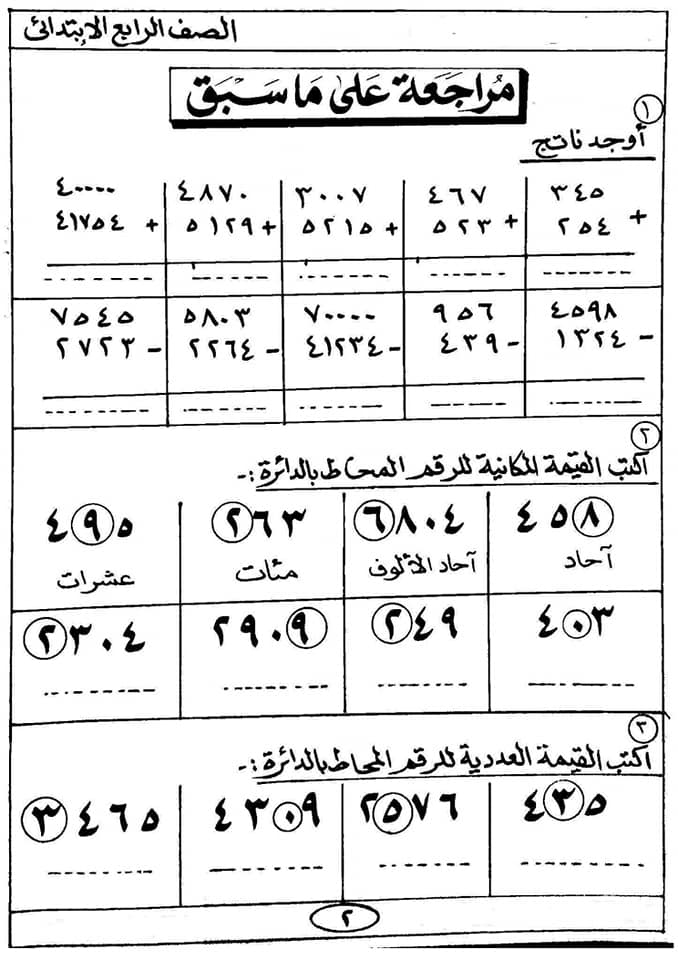 الصف الرابع الابتدائى
مراجعة على ما سبق
١
أوجد ناتج
٣٤٥ ٤٦٧ ٣٠٠٧ ٤٨٧٠ ٤٠٠٠٠
+ ٢٥٤ + ٥٢٣ + ٥٢١٥ + ٥١٢٩ + ٤١٧٥٤
٤٥٩٨ ٩٥٦ ٧٠٠٠٠ ٥٨٠٣ ٧٥٤٥
- ١٣٢٤ - ٤٣٩ - ٤١٢٣٤ - ٢٢٦٤ - ٢٧٢٣
٢
اكتب القيمة المكانية للرقم المحاط بالدائرة :-
٤٥٨ ٦٨٠٤ ٢٦٣ ٤٩٥
آحاد آحاد الألوف مئات عشرات
٤٠٣ ٢٤٩ ٢٩٠٩ ٢٣٠٤
٣
اكتب القيمة العددية للرقم المحاط بالدائرة :-
٤٣٥ ٢٥٧٦ ٤٣٠٩ ٣٤٦٥
٢